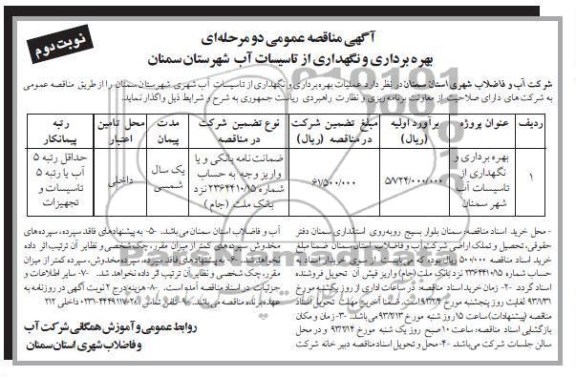 آگهی مناقصه عمومی دو مرحله‌ای
بهره برداری و نگهداری از تاسیسات آب شهرستان سمنان
نوبت دوم
شرکت آب و فاضلاب شهری استان سمنان در نظر دارد عملیات بهره برداری و نگهداری از تاسیسات آب شهری شهرستان سمنان را از طریق مناقصه عمومی
به شرکت های دارای صلاحیت از معاونت برنامه ریزی و نظارت راهبردی ریاست جمهوری به شرح و شرایط ذیل واگذار نماید.
ردیف
عنوان پروژه
برآورد اولیه (ریال)
مبلغ تضمین شرکت در مناقصه (ریال)
نوع تضمین شرکت در مناقصه
مدت پیمان
محل تامین اعتبار
رتبه پیمانکار
۱
بهره برداری و نگهداری از تاسیسات آب شهر سمنان
ضمانت نامه بانکی و یا واریز وجه به حساب شماره ۲۳۶۴۴۱۰/۱۵ نزد بانک ملت (جام)
یک سال شمسی
داخلی
حداقل رتبه ۵ آب یا رتبه ۵ تاسیسات و تجهیزات
- محل خرید اسناد مناقصه: سمنان بلوار بسیج روبه‌روی استانداری سمنان دفتر
حقوقی، تحصیل و تملک اراضی شرکت آب و فاضلاب استان سمنان ضمنا مبلغ
خرید اسناد مناقصه ۵۰۰/۰۰۰ ریال بوده که می‌بایست از سوی خریدار اسناد به
حساب شماره ۲۳۶۴۴۱۰/۱۵ نزد بانک ملت (جام) واریز فیش آن تحویل فروشنده
اسناد گردد ۲- زمان خرید اسناد مناقصه: در ساعات اداری از روز یکشنبه مورخ
لغایت روز پنجشنبه مورخ
مناقصه (پیشنهادات) ساعت ۱۵ روز شنبه مورخ می‌باشد. ۳- زمان و مکان
بازگشایی اسناد مناقصه: ساعت ۱۰ صبح روز یک شنبه مورخ و در محل
سالن جلسات شرکت می‌باشد. ۴- محل و تحویل اسناد مناقصه دبیر خانه شرکت
آب و فاضلاب استان سمنان می‌باشد. ۵- به پیشنهادهای فاقد سپرده، سپرده‌های
مخدوش سپرده‌های کمتر از میزان مقرر، چک شخصی و نظایر آن ترتیب اثر داده
نخواهد شد. ۶- به پیشنهادهای فاقد سپرده، سپرده مخدوش، سپرده کمتر از میزان
مقرر، چک شخصی و نظایر آن ترتیب اثر داده نخواهد شد. ۷- سایر اطلاعات و
جزئیات در اسناد مناقصه آمده است. ۸- هزینه درج ۲ نوبت آگهی در روزنامه به
عهده برنده مناقصه می‌باشد. ۹- تلفن تماس داخلی ۲۱۲
روابط عمومی و آموزش همگانی شرکت آب
و فاضلاب شهری استان سمنان